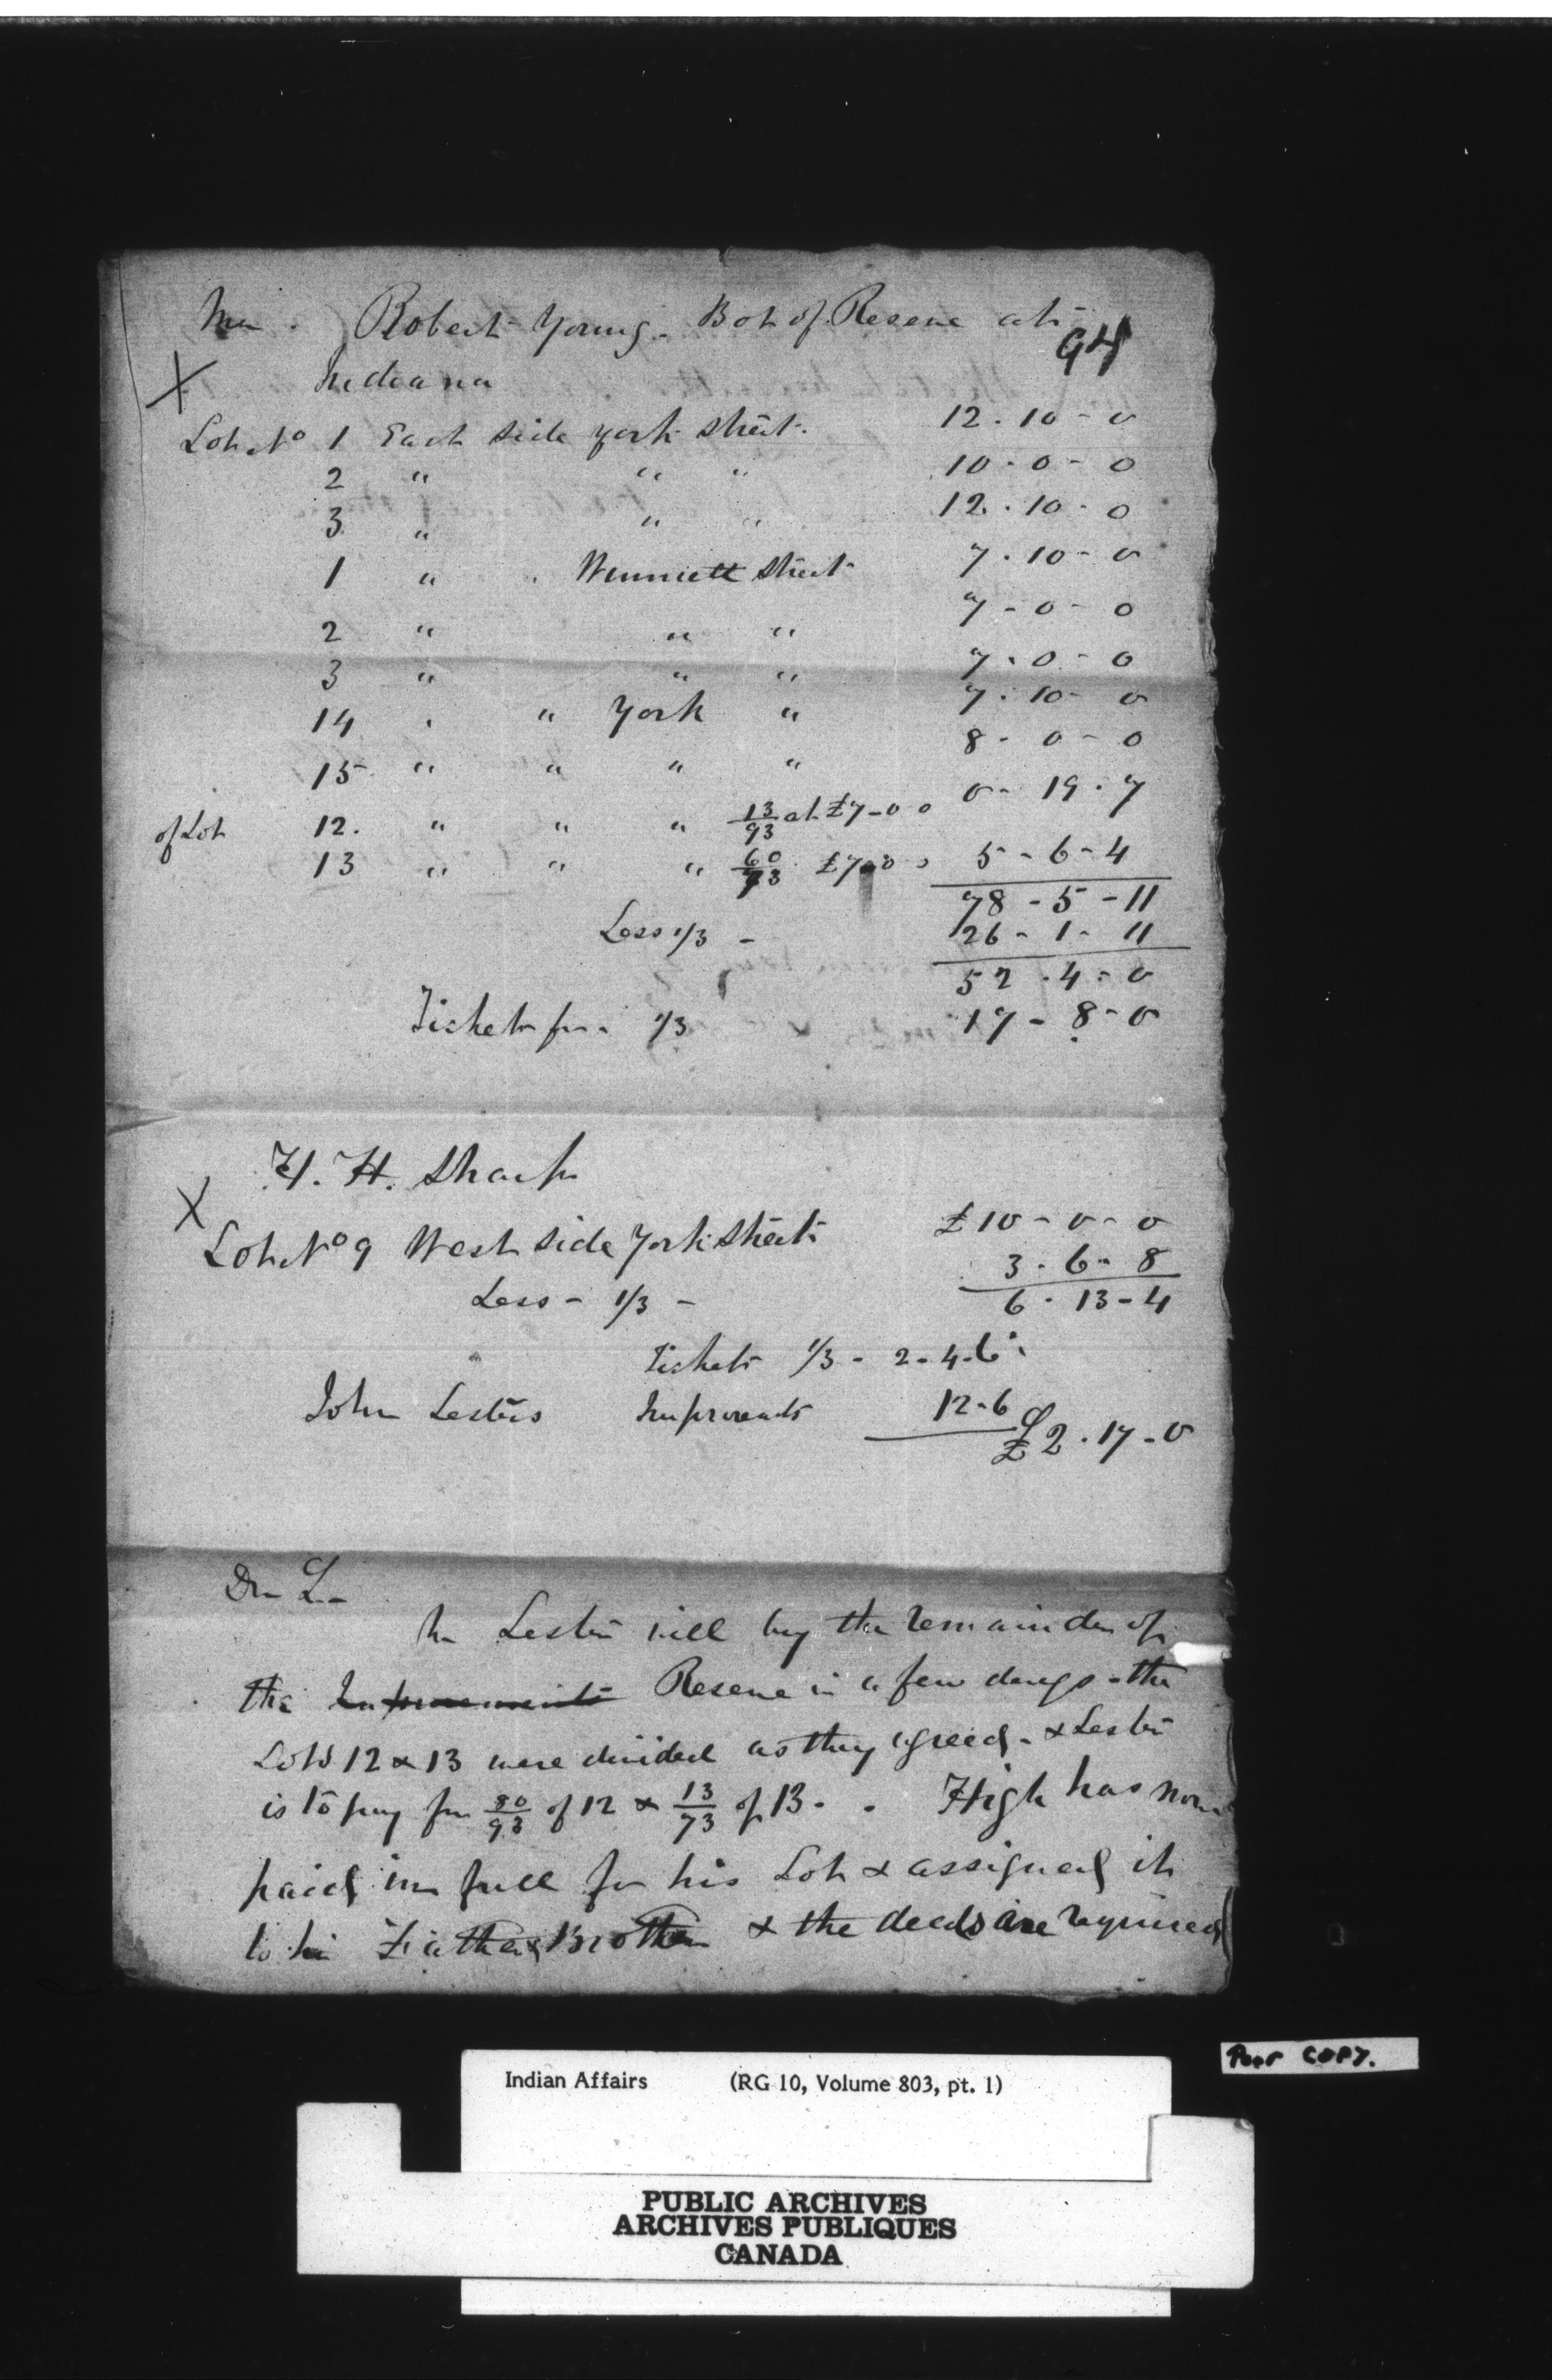 Mr. Robert Young. Bot of Reserve at
94
X Indiana
Lot No 1 East side York Street. 12.10-0
2 " " " 10-0-0
3 " " " 12.10-0
1 " Winniett Street 7.10-0
2 " " " 7-0-0
3 " " " 7.0-0
14 " York " 7.10-0
15 " " " " 8-0-0
of Lot 12. " " " 13/93 at £7-0 0 0-19.7
13 " " " 60/73 £7.0 0 5-6-4
78-5-11
Less 1/3 - 26-1-11
52.4-0
Tickets for 1/3 17-8-0
H. H. Sharp
X
Lot No 9 West side York Street £10-0-0
Less - 1/3 - 3-6-8
6-13-4
Tickets 1/3 - 2-4-6
John Lesters Improvemts 12-6
£2.17-0
Dr L-
Mr Lester will buy the remainder of
the Improvements Reserve in a few days - the
Lots 12 & 13 were divided as they agreed - & Lester
is to pay for 80/93 of 12 & 13/73 of 13 - . High has now
paid in full for his Lot & assigned it
to his Father & Brother & the deeds are required
Poor COPY.
Indian Affairs (RG 10, Volume 803, pt. 1)
PUBLIC ARCHIVES
ARCHIVES PUBLIQUES
CANADA